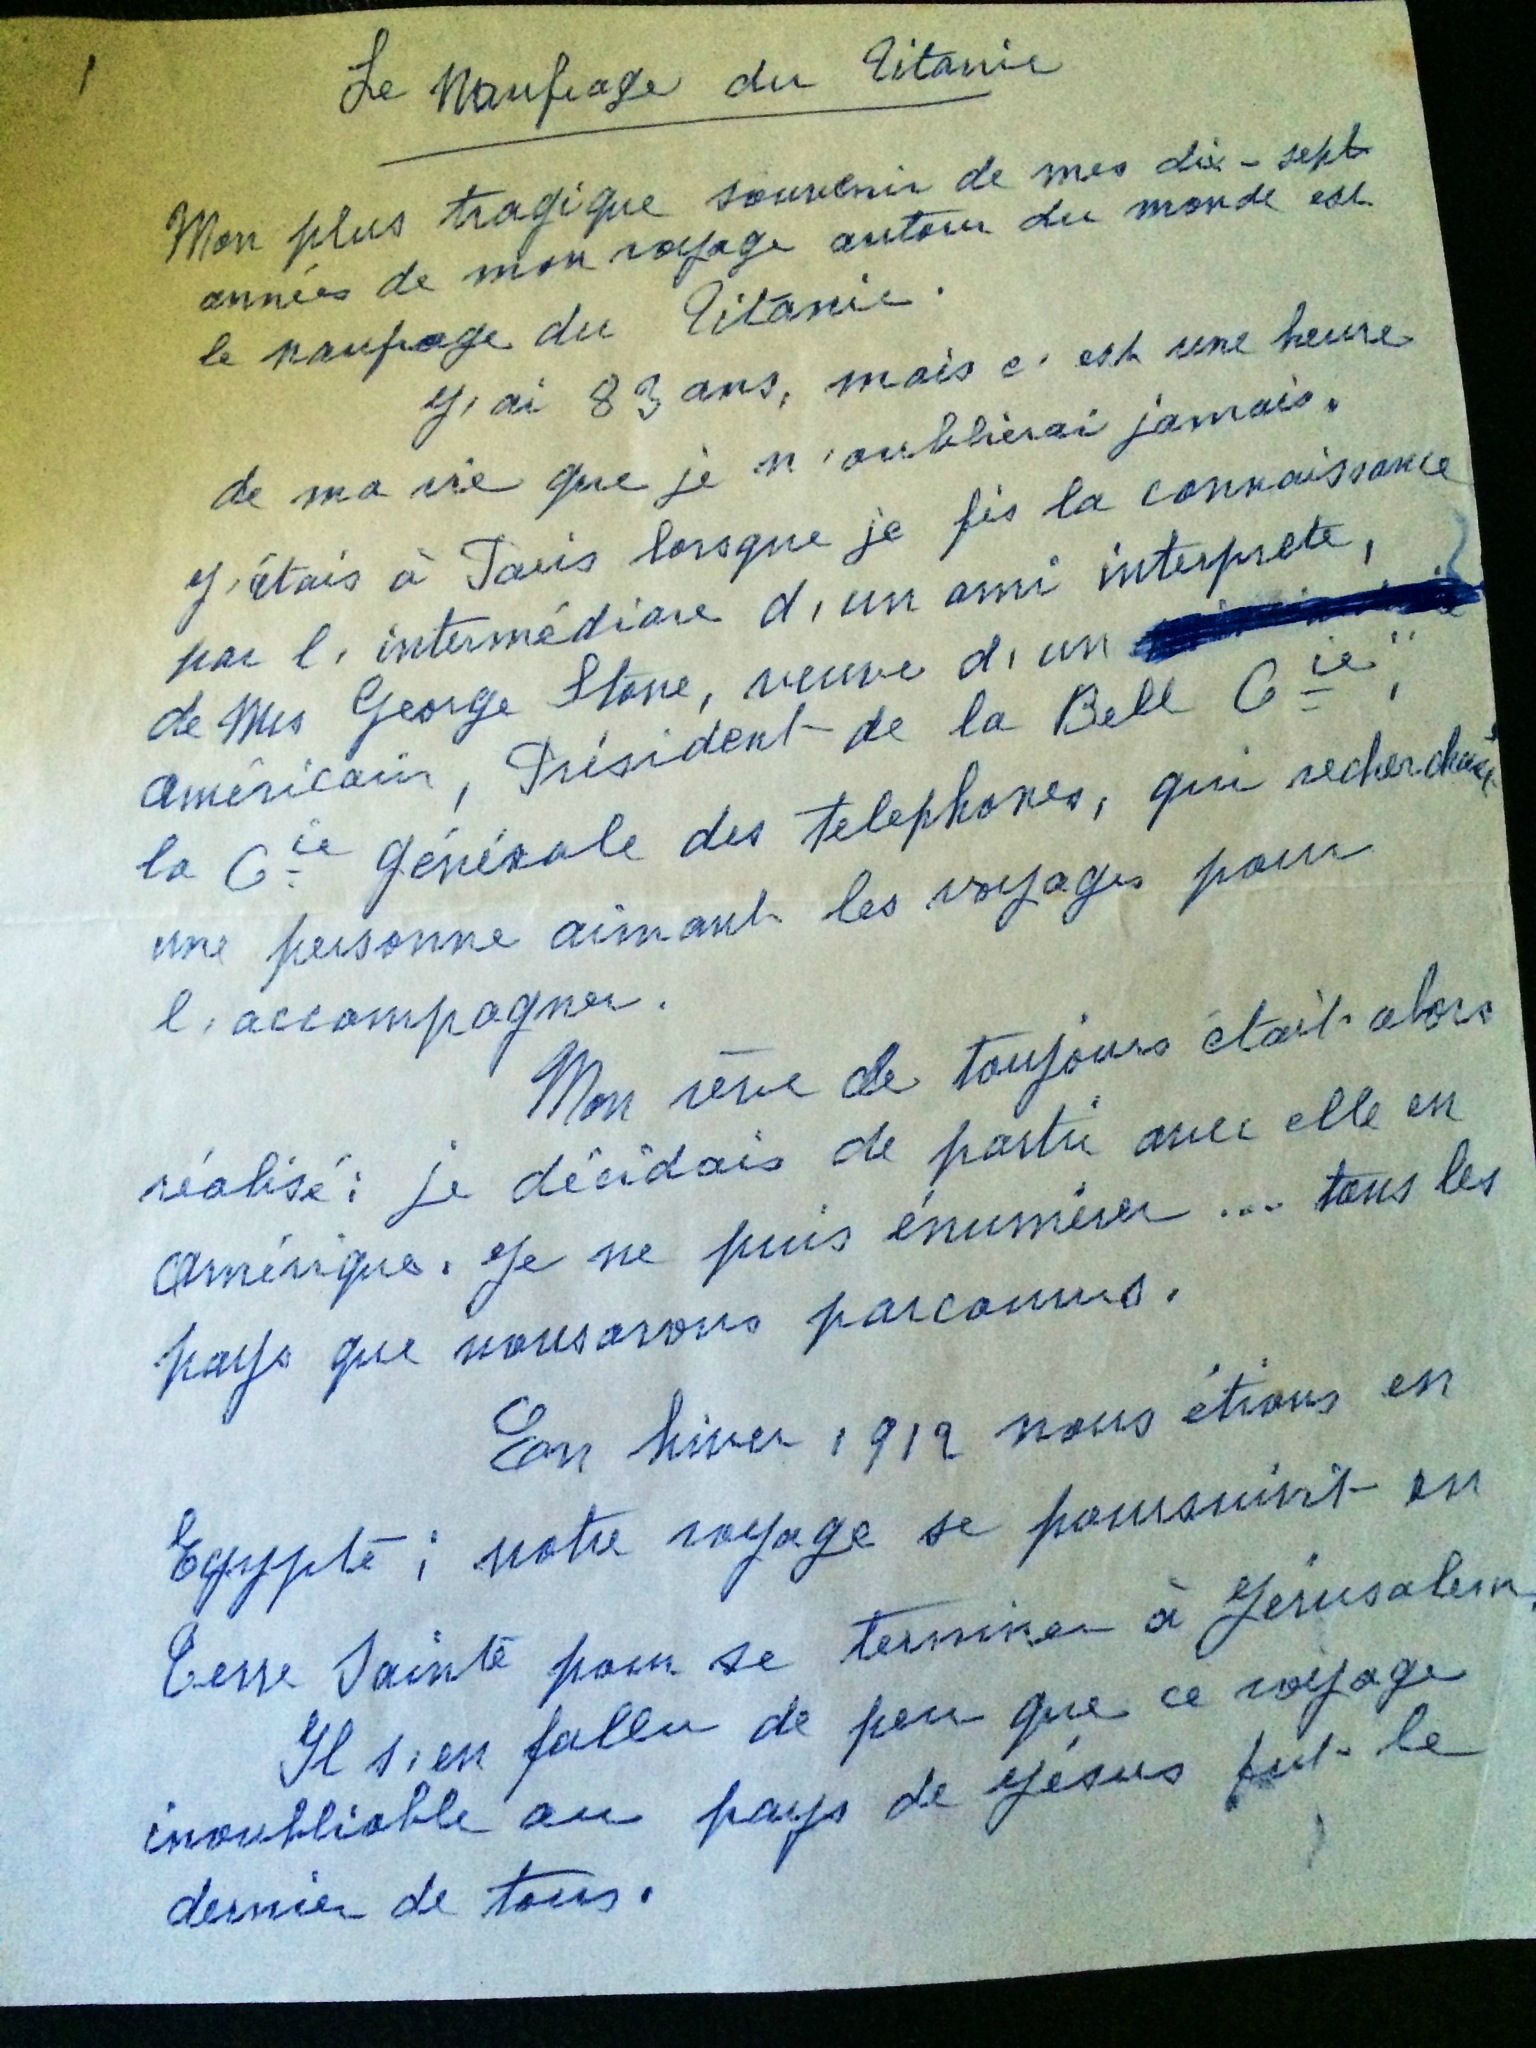 1
Le Naufrage du Titanic
Mon plus tragique souvenir de mes dix-sept
années de mon voyage autour du monde est
le naufrage du Titanic.
J'ai 83 ans, mais c'est une heure
de ma vie que je n'oublierai jamais.
J'étais à Paris lorsque je fis la connaissance
par l'intermédiare d'un ami interprete,
de Mrs George Stone, veuve d'un
américain, Président de la Bell Cie",
la Cie Générale des telephones, qui recherchait
une personne aimant les voyages pour
l'accompagner.
Mon rêve de toujours était alors
réalisé: je décidais de partir avec elle en
Amérique. Je ne puis énumérer ... tous les
pays que nous avons parcourus.
En hiver 1912 nous étions en
Egypte; notre voyage se poursuivit en
Terre Sainte pour se terminer à Jérusalem.
Il s'en fallu de peu que ce voyage
inoubliable au pays de Jésus fut le
dernier de tous.